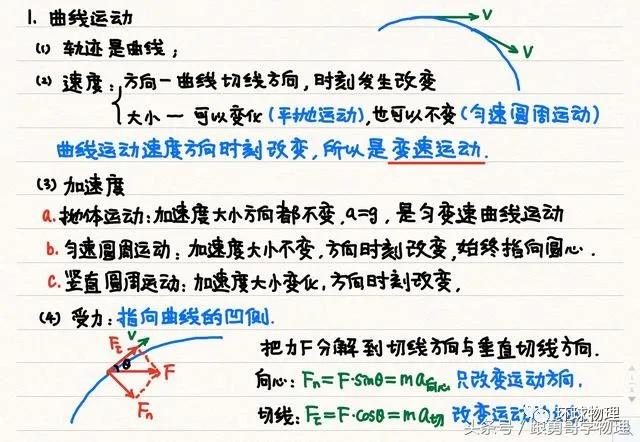 1. 曲线运动
(1) 轨迹是曲线；
(2) 速度：方向—曲线切线方向，时刻发生改变
大小—可以变化(平抛运动)，也可以不变(匀速圆周运动)
V
V
曲线运动速度方向时刻改变，所以是变速运动.
(3) 加速度
a. 抛体运动：加速度大小方向都不变，a=g，是匀变速曲线运动
b. 匀速圆周运动：加速度大小不变，方向时刻改变，始终指向圆心.
c. 竖直圆周运动：加速度大小变化，方向时刻改变，
(4) 受力：指向曲线的凹侧.
V
Fτ
θ
F
Fn
把力F分解到切线方向与垂直切线方向.
向心：Fn=F·sinθ=ma向心 只改变运动方向.
切线：Fτ=F·cosθ=ma切 改变运动
环球物理
头条号／跟勇哥学物理